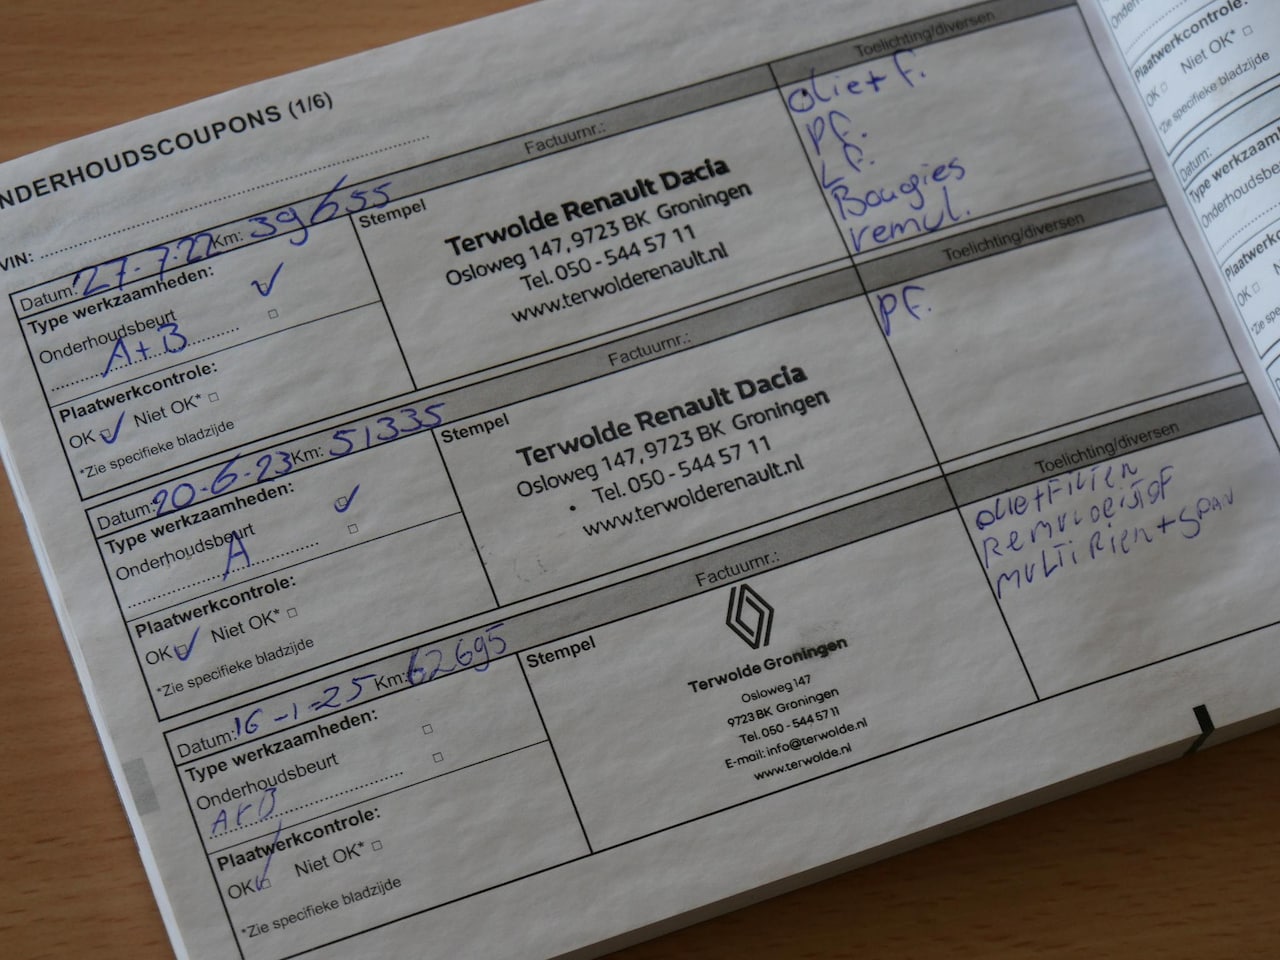 NDERHOUDSCOUPONS (1/6)
VIN:
Datum: 27-7-22 Km: 39655
Factuurnr.:
Toelichting/diversen
Type werkzaamheden:
Onderhoudsbeurt
A+B
Plaatwerkcontrole:
OK Niet OK*
*Zie specifieke bladzijde
Stempel
Terwolde Renault Dacia
Osloweg 147, 9723 BK Groningen
Tel. 050 - 544 57 11
www.terwolderenault.nl
olie+ f.
pf.
Lf.
Bougies
remvl.
Datum: 20-6-23 Km: 51335
Factuurnr.:
Toelichting/diversen
Type werkzaamheden:
Onderhoudsbeurt
A
Plaatwerkcontrole:
OK Niet OK*
*Zie specifieke bladzijde
Stempel
Terwolde Renault Dacia
Osloweg 147, 9723 BK Groningen
Tel. 050 - 544 57 11
www.terwolderenault.nl
pf.
Datum: 16-1-25 Km: 62695
Factuurnr.:
Toelichting/diversen
Type werkzaamheden:
Onderhoudsbeurt
A+B
Plaatwerkcontrole:
OK Niet OK*
*Zie specifieke bladzijde
Stempel
Terwolde Groningen
Osloweg 147
9723 BK Groningen
Tel. 050 - 544 57 11
E-mail: info@terwolde.nl
www.terwolde.nl
OLie+FiLTER
RemVLoeiSTOF
MULTi Riem+SPAN
Plaatwerkcontrole:
OK Niet OK*
*Zie specifieke bladzijde
Datum:
Type werkzaam
Onderhoudsbe
Plaatwerk
OK